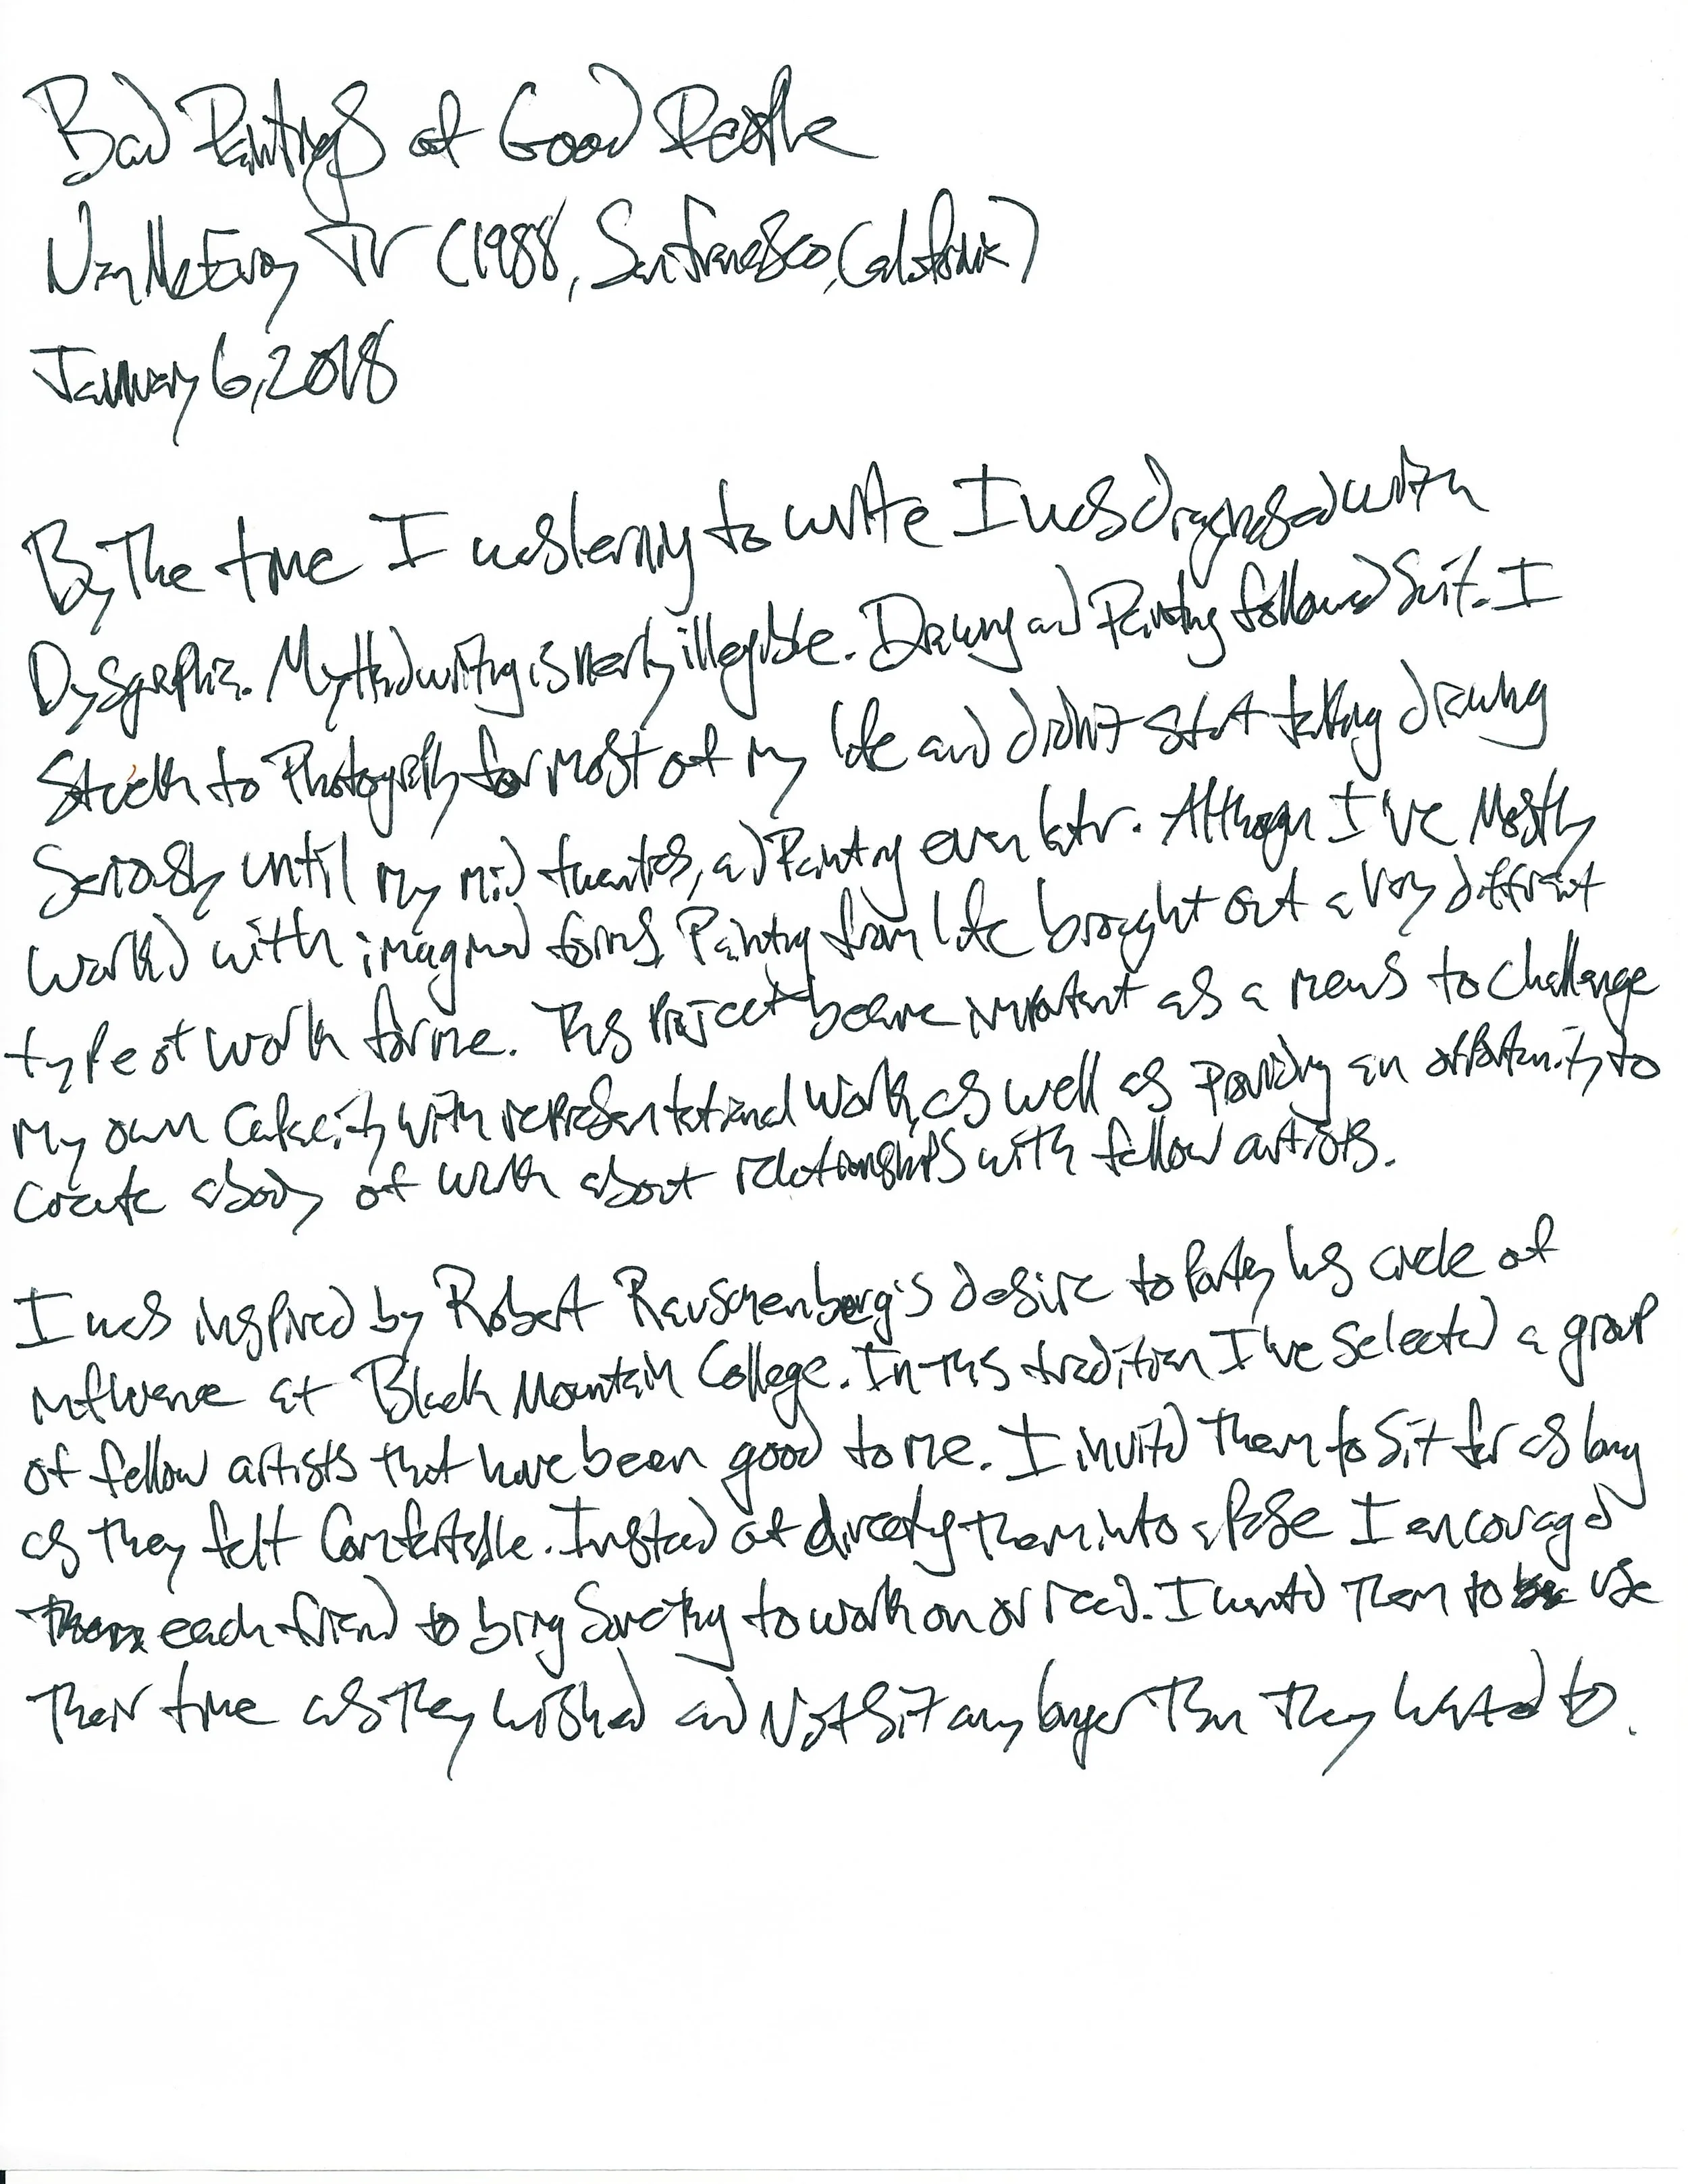 Bad Paintings of Good People
Nion McEvoy IV (1988, San Francisco, California)
January 6, 2018
By The time I was lerning to write I was diagnosed with
Dysgraphia. My Handwriting is nearly illegible. Drawing and Painting followed Suit. I
Stuck to Photography for most of my life and didn't start taking drawing
Seriously until my mid twenties, and Painting even later. Although I've Mostly
Worked with imagined forms, Painting from life brought out a very different
type of work for me. This Project became important as a means to challenge
My own Capacity with representational work, as well as Providing an opportunity to
Create a body of work about relationships with fellow artists.
I was inspired by Robert Rauschenberg's desire to Portray his circle of
influence at Black Mountain College. In this tradition I've Selected a group
of fellow artists that have been good to me. I invited them to Sit for as long
as they felt Comfortable. Instead of directing them into a Pose I encouraged
them each friend to bring Something to work on or read. I wanted Them to be use
Their time as they wished and Not Sit any longer Than They wanted to.